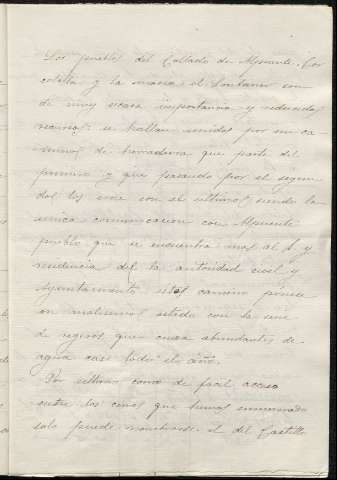 Los pueblos del Collado de Alpuente, Cor
colilla y la masia el Losanar son
de muy escasa importancia y reducidos
recursos: se hallan unidos por un ca-
mino de herradura que parte del
primero y que pasando por el segun
do los une con el ultimo siendo la
unica comunicacion con Alpuente
pueblo que se encuentra mas al S y
residencia del la autoridad civil y
Ayuntamiento este camino ponese
en malisimo estado con la serie
de regeros que cruza abundantes de
agua casi todo el año.
Por ultimo como de facil acceso
entre los cerros que hemos enumerado
solo puede nombrarse el del Castillo